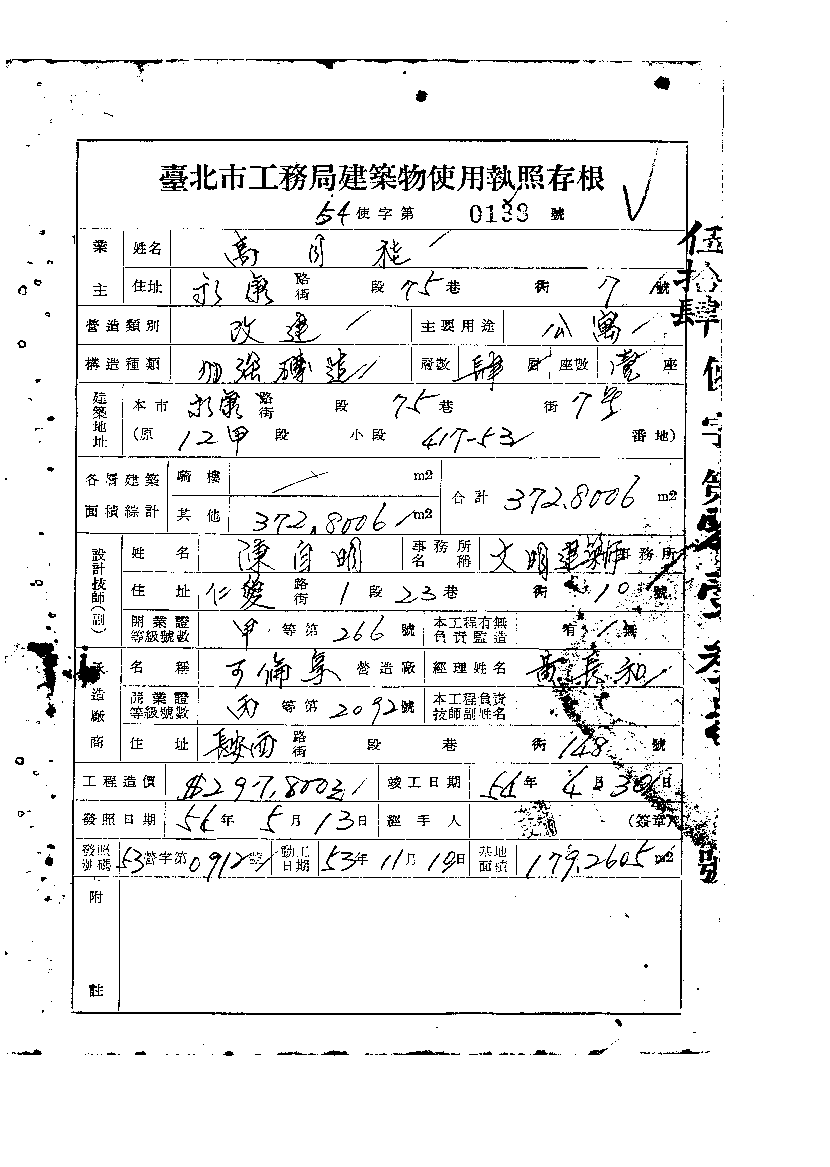 臺北市工務局建築物使用執照存根
54使字第 0133 號
業主 姓名 高月桂
住址 永康 路街 段 75巷 街 7 號
營造類別 改建 主要用途 公寓
構造種類 加強磚造 層數 肆層 座數 壹座
建築地址 本市 永康 路街 段 75巷 街 7号
(原 12甲 段 小段 417-53 番地)
各層建築面積綜計 騎樓 m2 合計 372.8006 m2
其他 372.8006 m2
設計技師(副) 姓名 陳自明 事務所名稱 文明建築師事務所
住址 仁愛 路街 1段 23巷 街 10號
開業證等級號數 甲等第 266 號 本工程有無負責監造 有 無
承造廠商 名稱 營造廠 經理姓名 黃長和
開業證等級號數 丙等第 2092號 本工程負責技師副姓名
住址 長安西 路街 段 巷 街 148 號
工程造價 $297,800元 竣工日期 54年 4月30日
發照日期 54年 5月13日 經手人 (簽章)
發照號碼 53營字第0912號 動工日期 53年11月19日 基地面積 179.2605 m2
附註
伍拾肆使字第零壹叁叁號